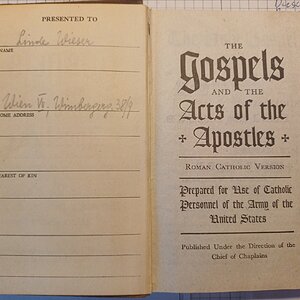 PRESENTED TO
Linde Wieser
NAME
Wien VI, Wimbergerg. 38/9
OME ADDRESS
AREST OF KIN
THE
Gospels
AND THE
Acts of the
Apostles
ROMAN CATHOLIC VERSION
Prepared for Use of Catholic
Personnel of the Army of the
United States
Published Under the Direction of the
Chief of Chaplains